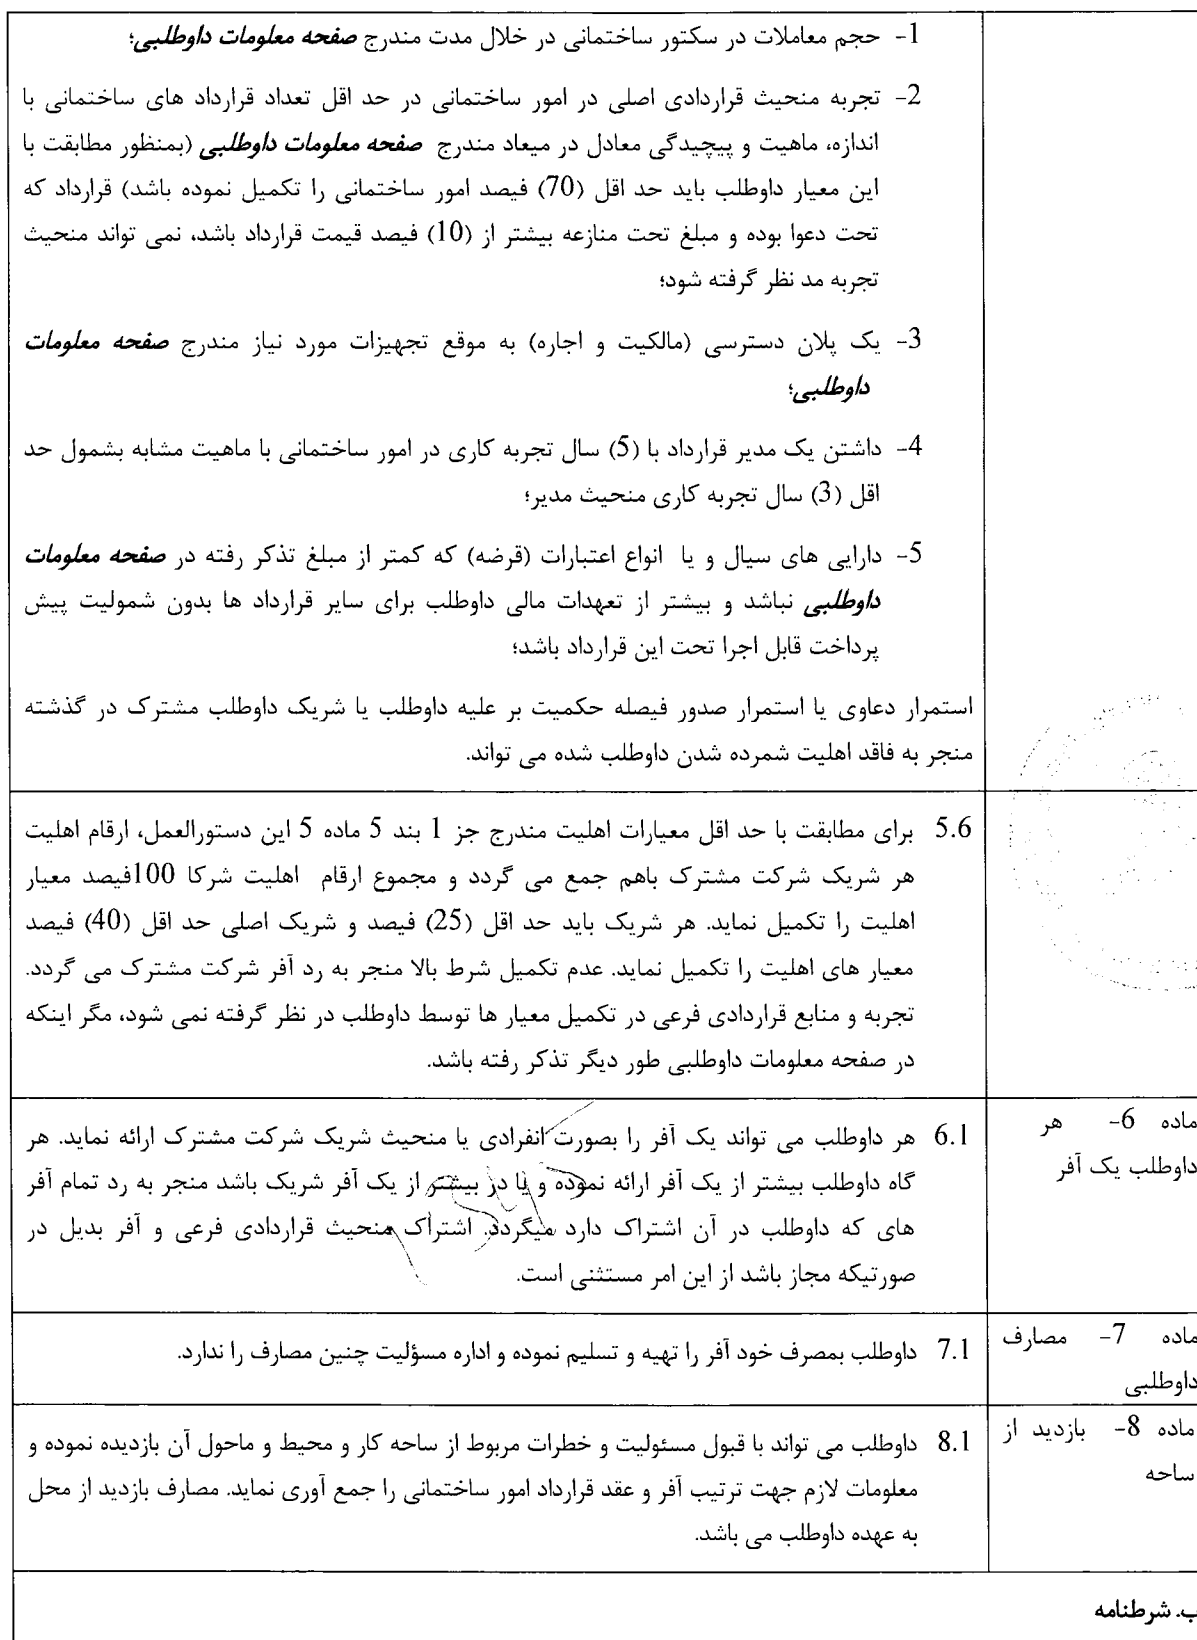 1- حجم معاملات در سکتور ساختمانی در خلال مدت مندرج صفحه معلومات داوطلبی؛
2- تجربه منحیث قراردادی اصلی در امور ساختمانی در حد اقل تعداد قرارداد های ساختمانی با
اندازه، ماهیت و پیچیدگی معادل در میعاد مندرج صفحه معلومات داوطلبی (بمنظور مطابقت با
این معیار داوطلب باید حد اقل (70) فیصد امور ساختمانی را تکمیل نموده باشد) قرارداد که
تحت دعوا بوده و مبلغ تحت منازعه بیشتر از (10) فیصد قیمت قرارداد باشد، نمی تواند منحیث
تجربه مد نظر گرفته شود؛
3- یک پلان دسترسی (مالکیت و اجاره) به موقع تجهیزات مورد نیاز مندرج صفحه معلومات
داوطلبی؛
4- داشتن یک مدیر قرارداد با (5) سال تجربه کاری در امور ساختمانی با ماهیت مشابه بشمول حد
اقل (3) سال تجربه کاری منحیث مدیر؛
5- دارایی های سیال و یا انواع اعتبارات (قرضه) که کمتر از مبلغ تذکر رفته در صفحه معلومات
داوطلبی نباشد و بیشتر از تعهدات مالی داوطلب برای سایر قرارداد ها بدون شمولیت پیش
پرداخت قابل اجرا تحت این قرارداد باشد؛
استمرار دعاوی یا استمرار صدور فیصله حکمیت بر علیه داوطلب یا شریک داوطلب مشترک در گذشته
منجر به فاقد اهلیت شمرده شدن داوطلب شده می تواند.
5.6 برای مطابقت با حد اقل معیارات اهلیت مندرج جز 1 بند 5 ماده 5 این دستورالعمل، ارقام اهلیت
هر شریک شرکت مشترک باهم جمع می گردد و مجموع ارقام اهلیت شرکا 100فیصد معیار
اهلیت را تکمیل نماید. هر شریک باید حد اقل (25) فیصد و شریک اصلی حد اقل (40) فیصد
معیار های اهلیت را تکمیل نماید. عدم تکمیل شرط بالا منجر به رد آفر شرکت مشترک می گردد.
تجربه و منابع قراردادی فرعی در تکمیل معیار ها توسط داوطلب در نظر گرفته نمی شود، مگر اینکه
در صفحه معلومات داوطلبی طور دیگر تذکر رفته باشد.
ماده 6- هر
داوطلب یک آفر
6.1 هر داوطلب می تواند یک آفر را بصورت انفرادی یا منحیث شریک شرکت مشترک ارائه نماید. هر
گاه داوطلب بیشتر از یک آفر ارائه نموده و یا در بیشتر از یک آفر شریک باشد منجر به رد تمام آفر
های که داوطلب در آن اشتراک دارد میگردد. اشتراک منحیث قراردادی فرعی و آفر بدیل در
صورتیکه مجاز باشد از این امر مستثنی است.
ماده 7- مصارف
داوطلبی
7.1 داوطلب بمصرف خود آفر را تهیه و تسلیم نموده و اداره مسؤلیت چنین مصارف را ندارد.
ماده 8- بازدید از
ساحه
8.1 داوطلب می تواند با قبول مسئولیت و خطرات مربوط از ساحه کار و محیط و ماحول آن بازدیده نموده و
معلومات لازم جهت ترتیب آفر و عقد قرارداد امور ساختمانی را جمع آوری نماید. مصارف بازدید از محل
به عهده داوطلب می باشد.
ب. شرطنامه